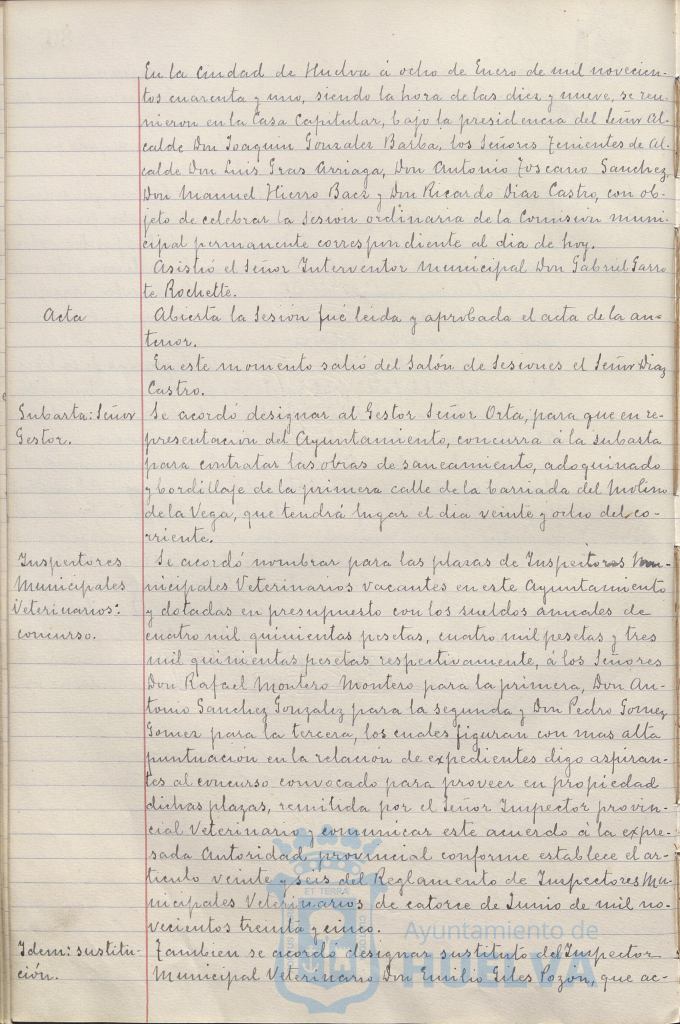 En la ciudad de Huelva á ocho de Enero de mil novecien-
tos cuarenta y uno, siendo la hora de las diez y nueve, se reu-
nieron en la Casa Capitular, bajo la presidencia del Señor Al-
calde Don Joaquin Gonzalez Barba, los Señores Tenientes de Al-
calde Don Luis Gras Arriaga, Don Antonio Toscano Sanchez,
Don Manuel Hierro Baez y Don Ricardo Diaz Castro, con ob-
jeto de celebrar la Sesion ordinaria de la Comision muni-
cipal permanente correspondiente al dia de hoy.
Asistió el Señor Interventor Municipal Don Gabriel Garro-
te Rochette.
Acta
Abierta la Sesión fué leida y aprobada el acta de la an-
terior.
En este momento salió del Salón de Sesiones el Señor Diaz
Castro.
Subasta: Señor
Gestor.
Se acordó designar al Gestor Señor Orta, para que en re-
presentación del Ayuntamiento, concurra á la subasta
para contratar las obras de saneamiento, adoquinado
y bordillaje de la primera calle de la barriada del Molino
de la Vega, que tendrá lugar el dia veinte y ocho del co-
rriente.
Inspectores
Municipales
Veterinarios:
concurso.
Se acordó nombrar para las plazas de Inspectores Mu-
nicipales Veterinarios vacantes en este Ayuntamiento
y dotadas en presupuesto con los sueldos anuales de
cuatro mil quinientas pesetas, cuatro mil pesetas y tres
mil quinientas pesetas respectivamente, á los Señores
Don Rafael Montero Montero para la primera, Don An-
tonio Sanchez Gonzalez para la segunda y Don Pedro Gomez
Gomez para la tercera, los cuales figuran con mas alta
puntuación en la relación de expedientes digo aspiran-
tes al concurso convocado para proveer en propiedad
dichas plazas, remitida por el Señor Inspector provin-
cial Veterinario y comunicar este acuerdo á la expre-
sada Autoridad provincial conforme establece el ar-
ticulo veinte y seis del Reglamento de Inspectores Mu-
nicipales Veterinarios de catorce de Junio de mil no-
vecientos treinta y cinco.
Idem: sustitu-
ción.
Tambien se acordó designar sustituto del Inspector
Municipal Veterinario Don Emilio Giles Pozon, que ac-
ET TERRA
Ayuntamiento de
HUELVA